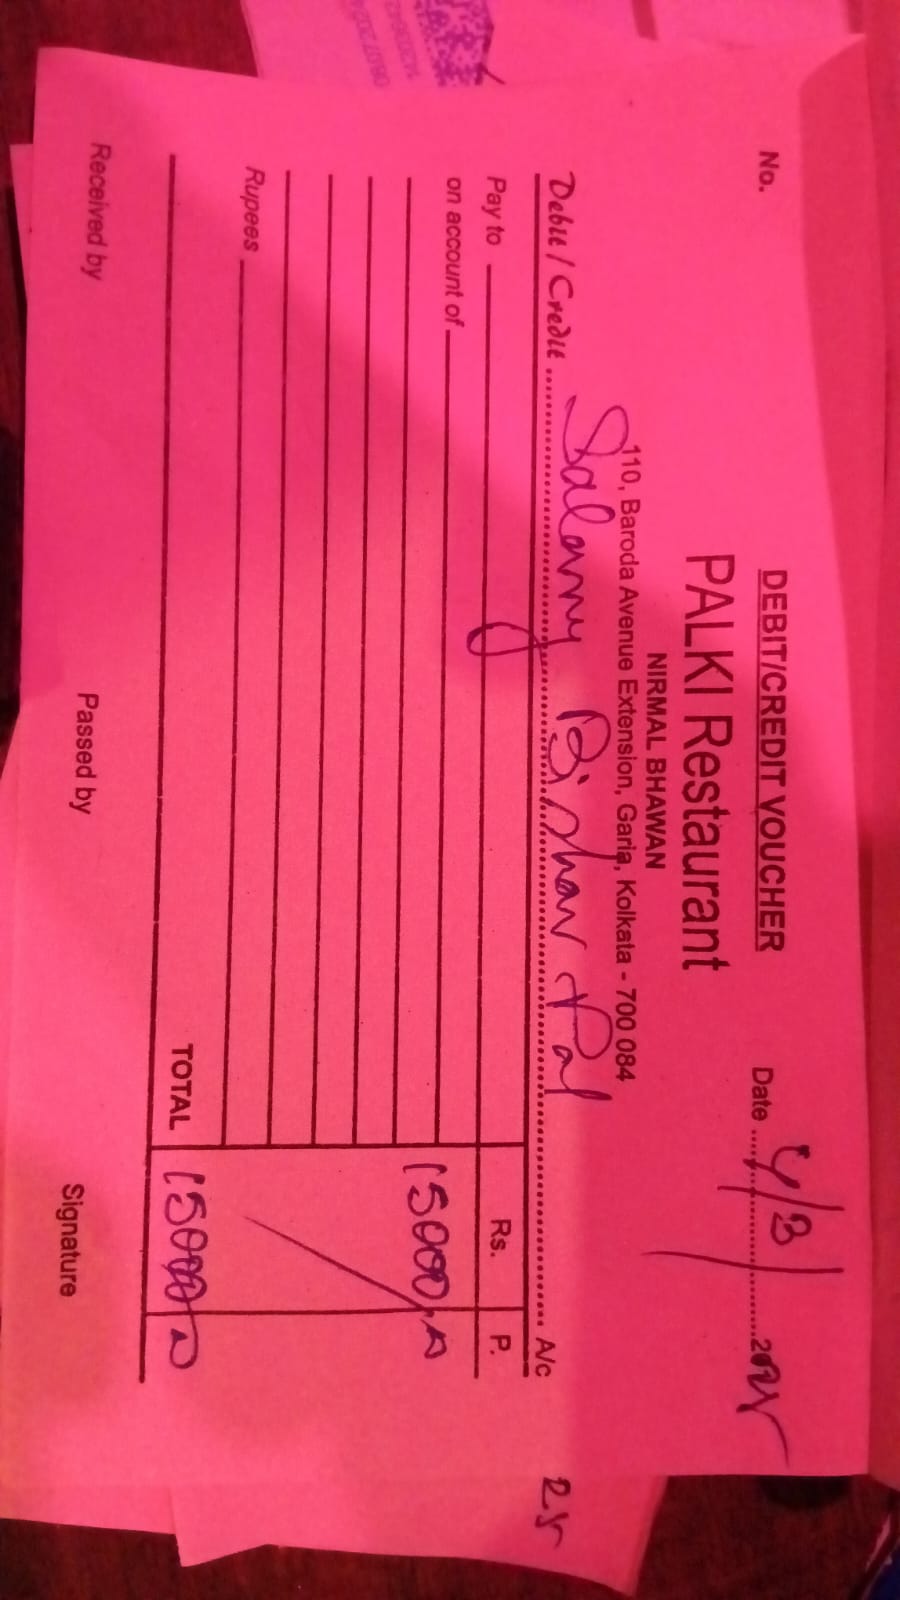 DEBIT/CREDIT VOUCHER
No. Date 4/3/ 2025
PALKI Restaurant
NIRMAL BHAWAN
110, Baroda Avenue Extension, Garia, Kolkata - 700 084
Debit / Credit Salary Bishar Pal A/c
Pay to Rs. P.
on account of
15000
Rupees
TOTAL 15000
Received by Passed by Signature
25